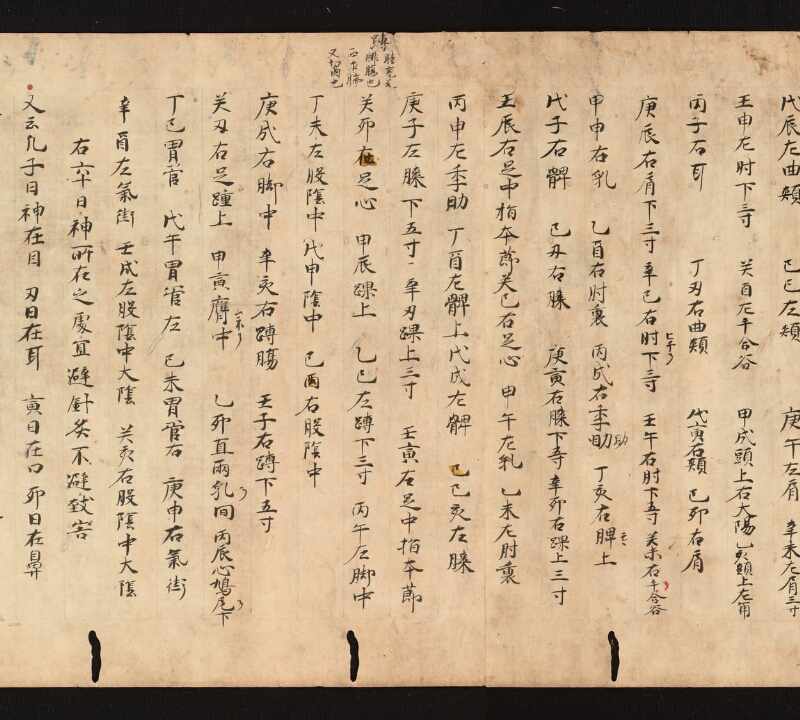 戊辰左曲頰 己巳左頰 庚午左肩 辛未左肩三寸
壬申左肘下三寸 癸酉左手合谷 甲戌頭上右太陽 乙亥頭上左角
丙子右耳 丁丑右曲頰 戊寅右頰 己卯右肩
庚辰右肩下三寸 辛巳右肘下三寸 壬午右肘下五寸 癸未右手合谷
甲申右乳 乙酉右肘裏 丙戌右季肋 丁亥右髀上
戊子右髀 己丑右膝 庚寅右膝下五寸 辛卯右踝上三寸
壬辰右足中指本節 癸巳右足心 甲午左乳 乙未左肘裏
丙申左季肋 丁酉左髀上 戊戌左髀 己亥左膝
庚子左膝下五寸 辛丑踝上三寸 壬寅右足中指本節
癸卯右足心 甲辰踝上 乙巳左蹲下三寸 丙午左脚中
丁未左股陰中 戊申陰中 己酉右股陰中
庚戌右脚中 辛亥右蹲腸 壬子右蹲下五寸
癸丑右足踵上 甲寅膺中 乙卯直兩乳间 丙辰心鳩尾下
丁巳胃管 戊午胃管左 己未胃管右 庚申右氣街
辛酉左氣街 壬戌左股陰中大陰 癸亥右股陰中大陰
右六十日神所在之處宜避針灸不避致害
又云凡子日神在目 丑日在耳 寅日在口 卯日在鼻